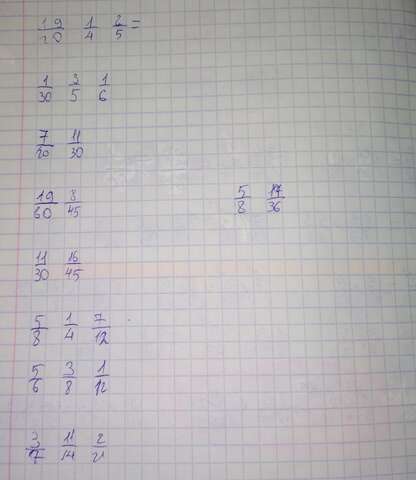 19/20 1/4 2/5 =
1/30 3/5 1/6
7/20 11/30
19/60 8/45
5/8 17/36
11/30 16/45
5/8 1/4 7/12
5/6 3/8 1/12
3/7 11/14 2/21